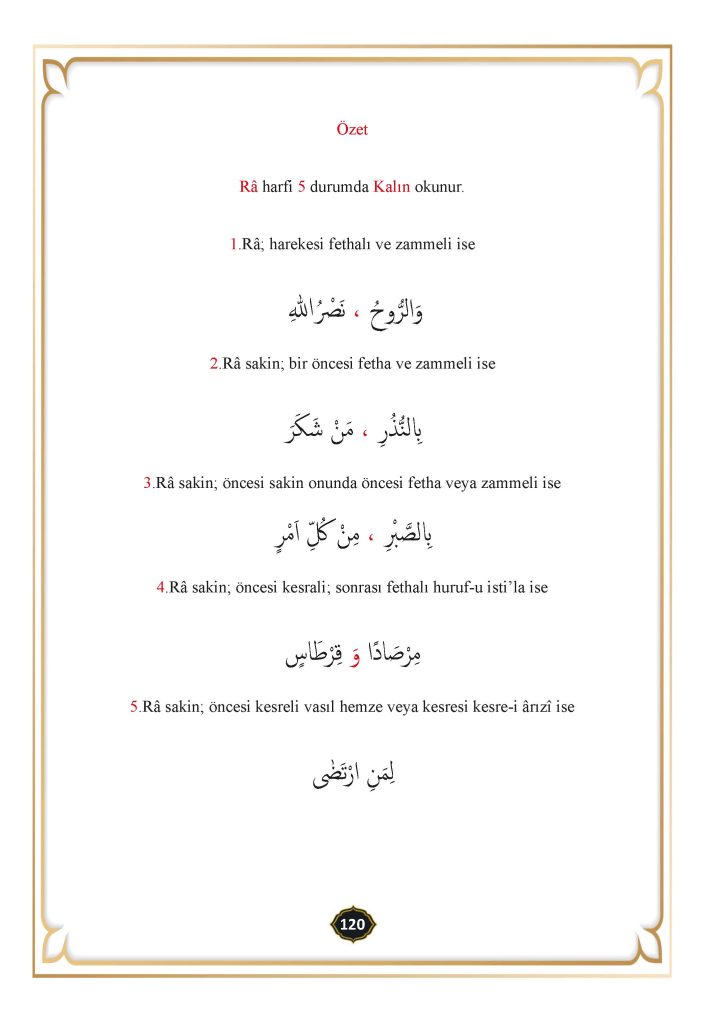 Özet
Râ harfi 5 durumda Kalın okunur.
1.Râ; harekesi fethalı ve zammeli ise
وَالرُّوحُ ، نَصْرُ اللهِ
2.Râ sakin; bir öncesi fetha ve zammeli ise
بِالنُّذُرِ ، مَنْ شَكَرَ
3.Râ sakin; öncesi sakin onunda öncesi fetha veya zammeli ise
بِالصَّبْرِ ، مِنْ كُلِّ اَمْرٍ
4.Râ sakin; öncesi kesrali; sonrası fethalı huruf-u isti’la ise
مِرْصَادًا وَ قِرْطَاسٍ
5.Râ sakin; öncesi kesreli vasıl hemze veya kesresi kesre-i ârızî ise
لِمَنِ ارْتَضٰى
120